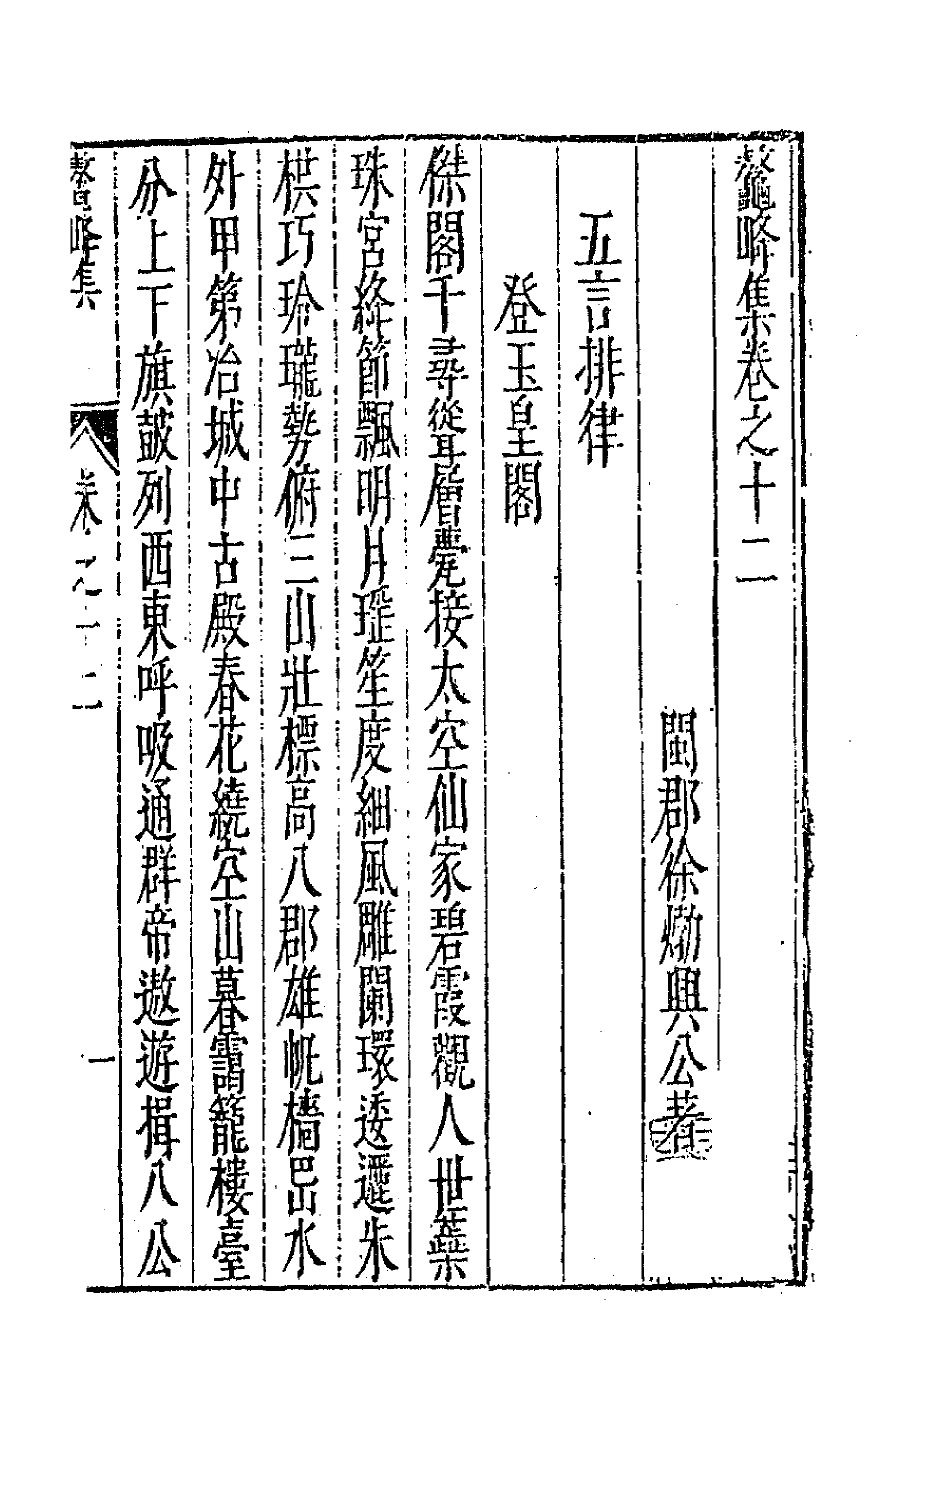 鼇峰集卷之十二
閩郡徐㷆興公著
五言排律
登玉皇閣
傑閣千尋聳層甍接太空仙家碧霞觀人世蘂
珠宮絳節飄明月瑶笙度細風雕闌環逶邐朱
栱巧玲瓏勢俯三山壯標高八郡雄帆檣𡶶水
外甲第冶城中古殿春花繞空山暮靄籠樓臺
分上下旗鼓列西東呼吸通群帝遨遊揖八公
鼇峰集
卷之十二
一